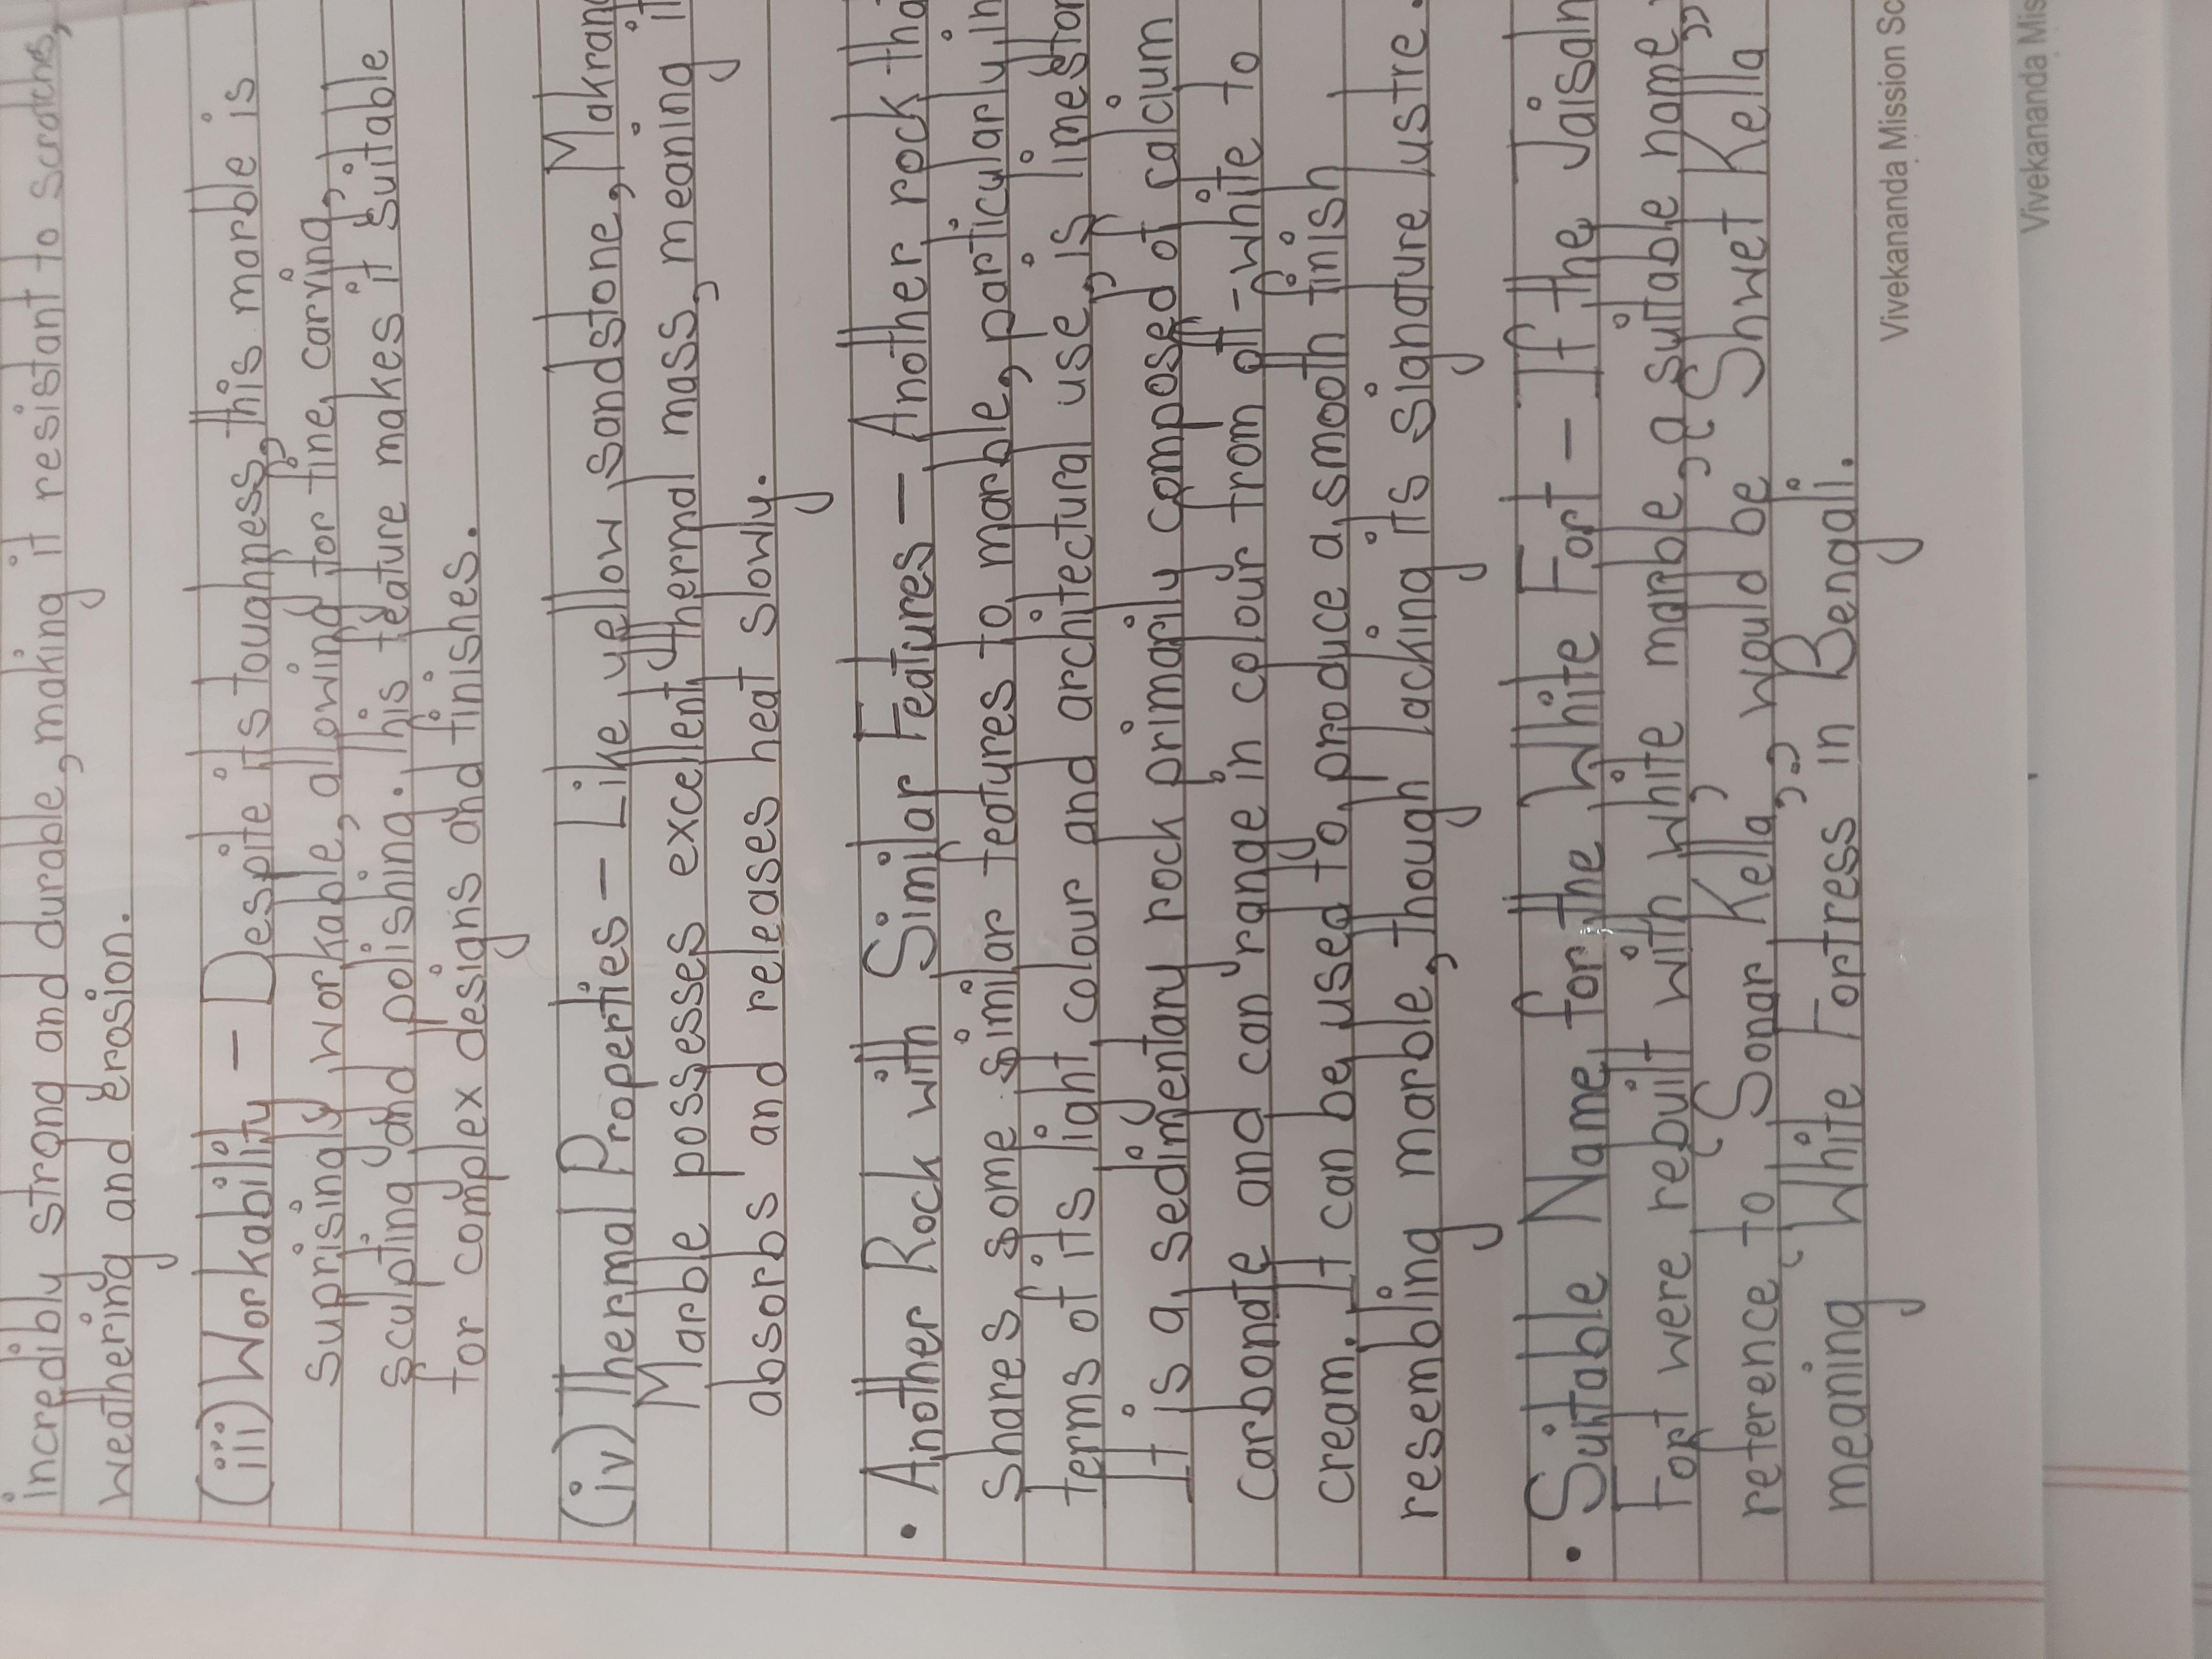 incredibly strong and durable, making it resistant to scratches,
weathering and erosion.
(iii) Workability - Despite its toughness, this marble is
suprisingly workable, allowing for fine carving,
sculpting and polishing. This feature makes it suitable
for complex designs and finishes.
(iv) Thermal Properties - Like yellow sandstone,
Marble possesses excellent thermal mass, meaning
absorbs and releases heat slowly.
• Another Rock with Similar Features - Another rock
shares some similar features to marble, particularly in
terms of its light colour and architectural use, is
It is a sedimentary rock primarily composed of calcium
carbonate and can range in colour from off-white to
cream. It can be used to produce a smooth finish
resembling marble, though lacking its signature lustre.
• Suitable Name for the White Fort - If the
Fort were rebuilt with white marble, a suitable name,
reference to 'Sonar Kella', would be “Shwet Kella”
meaning 'White Fortress' in Bengali.
Vivekananda Mission
Vivekananda